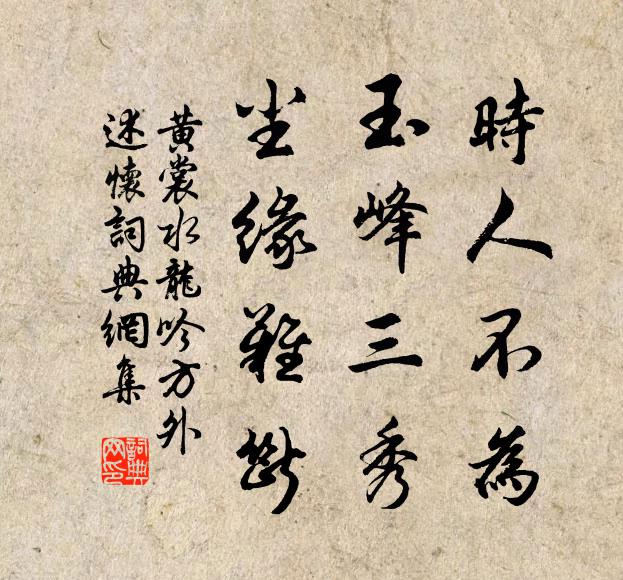 時人不為
玉峰三秀
尘緣難斷
黄裳水龍吟方外
述懷詞典網集
詞典
网印